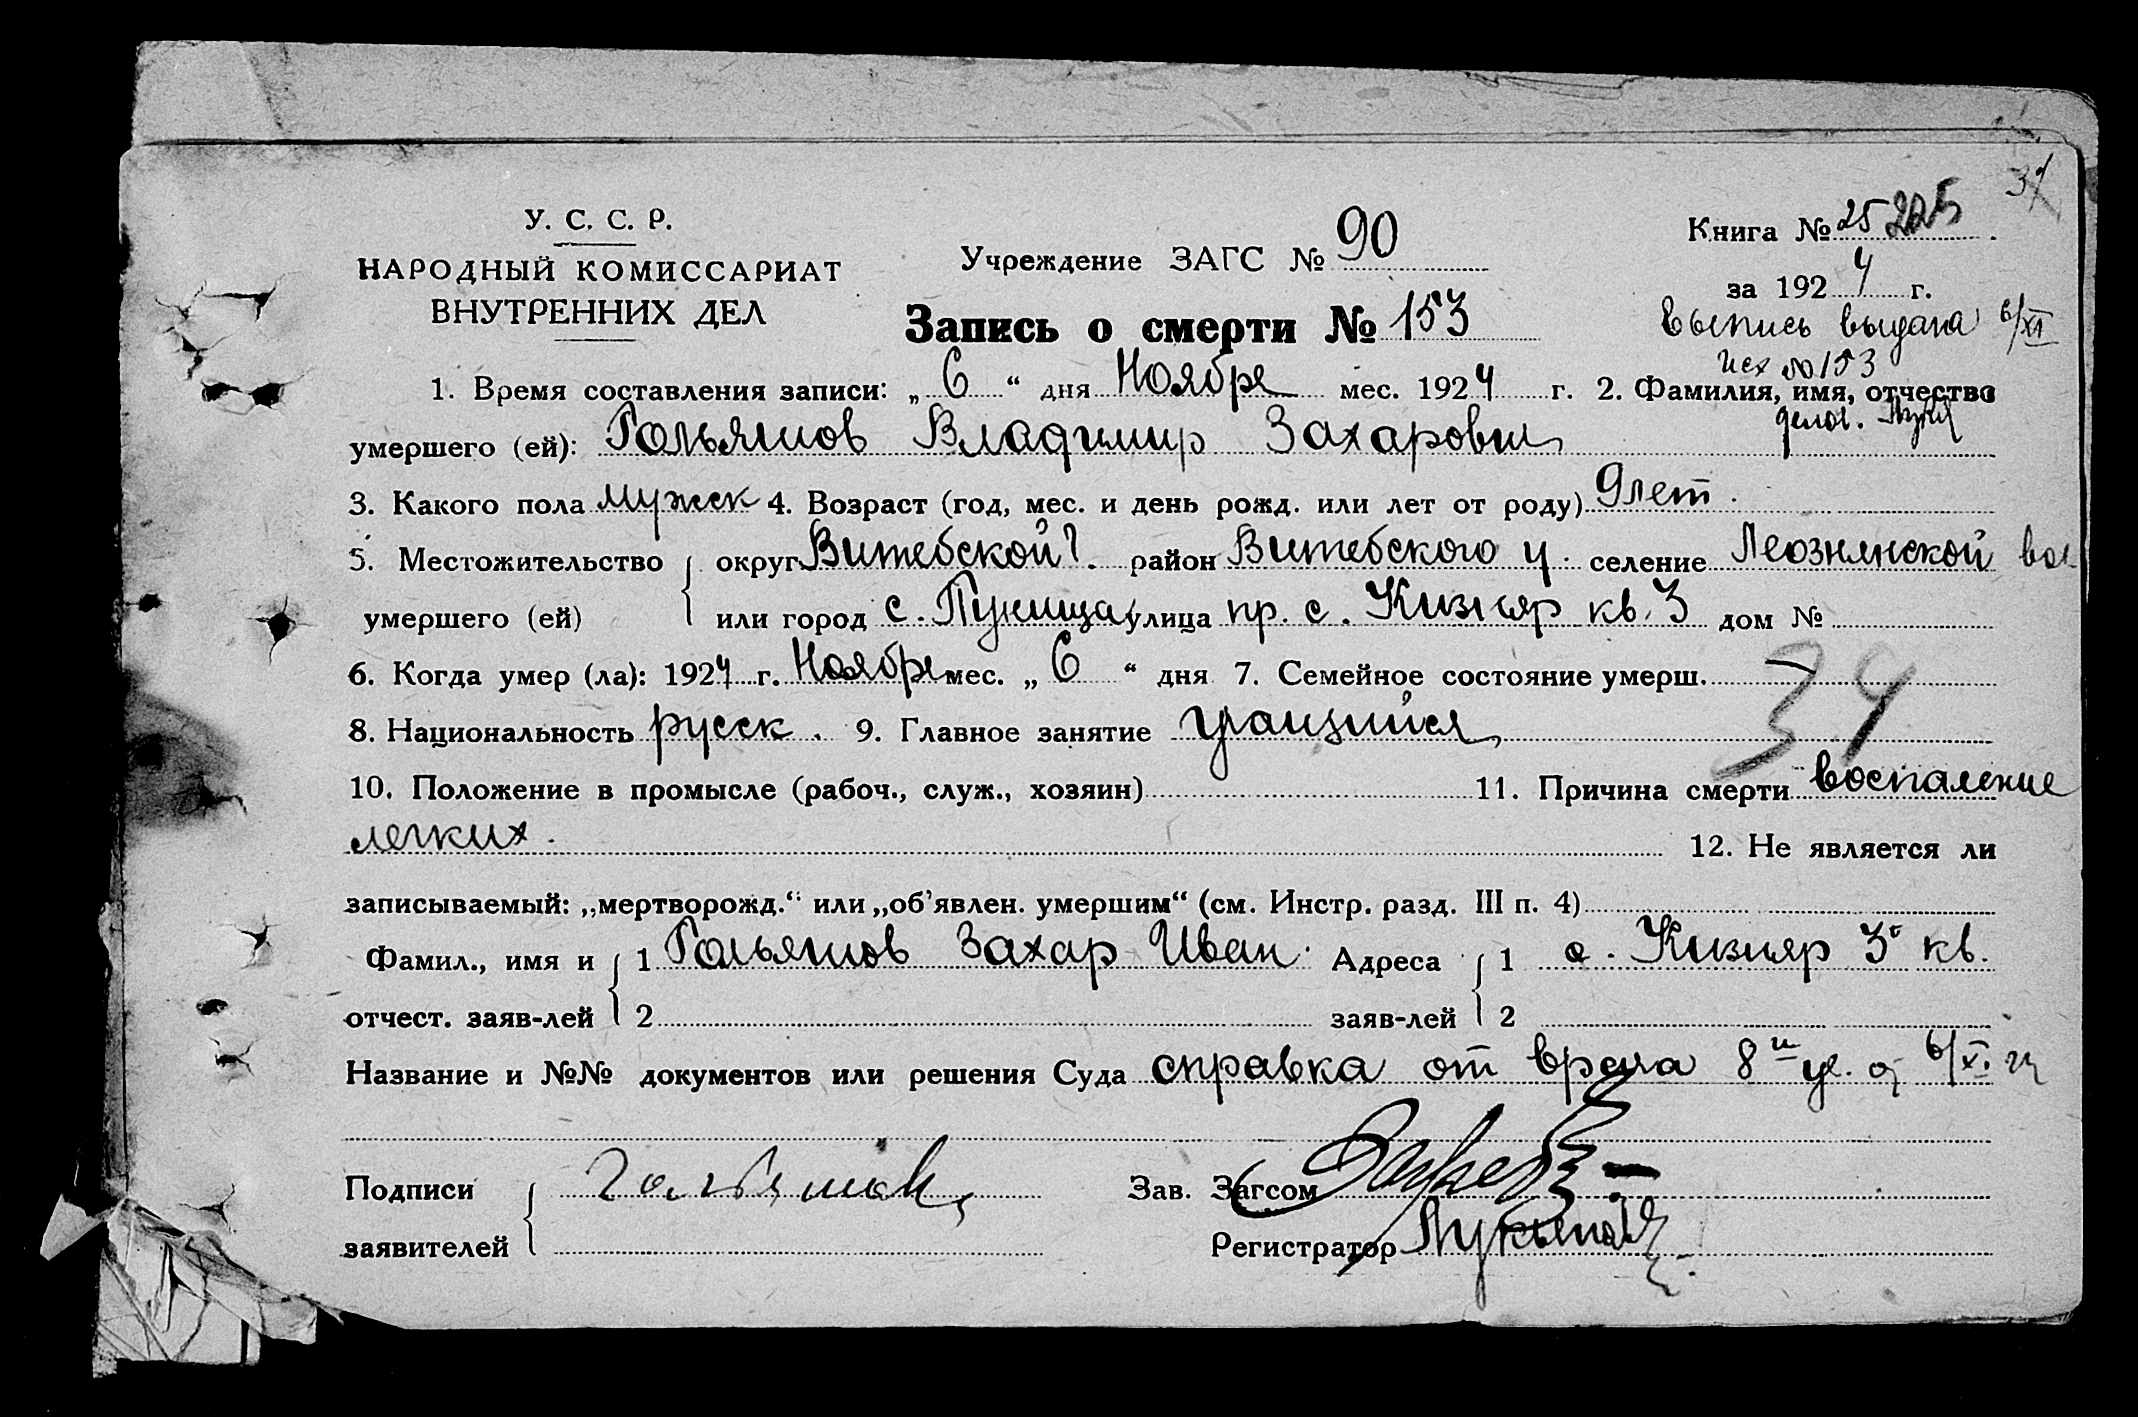 37
У. С. С. Р.
НАРОДНЫЙ КОМИССАРИАТ
ВНУТРЕННИХ ДЕЛ
Учреждение ЗАГС № 90
Книга № 25 225
за 1924 г.
Запись о смерти № 153
Выпись выдана 6/XI
исх № 153
1. Время составления записи: „6“ дня Ноября мес. 1924 г. 2. Фамилия, имя, отчество
умершего (ей): Гольяшов Владимир Захарович
3. Какого пола мужск 4. Возраст (год, мес. и день рожд. или лет от роду) 9 лет.
5. Местожительство округ Витебской г. район Витебского у. селение Леознянской вол
умершего (ей) или город с. улица пр. с. Кизияр кв. 3 дом №
6. Когда умер (ла): 1924 г. Ноября мес. „6“ дня 7. Семейное состояние умерш.
34
8. Национальность русск. 9. Главное занятие учащийся
10. Положение в промысле (рабоч., служ., хозяин) 11. Причина смерти воспаление
легких. 12. Не является ли
записываемый: „мертворожд.“ или „об'явлен. умершим“ (см. Инстр. разд. III п. 4)
Фамил., имя и 1 Гольяшов Захар Иван. Адреса 1 с. Кизияр 3 кв.
отчест. заяв-лей 2 заяв-лей 2
Название и №№ документов или решения Суда справка от врача 8 уч. от 6/XI. 24
Подписи Гольяшов Зав. Загсом
заявителей Регистратор